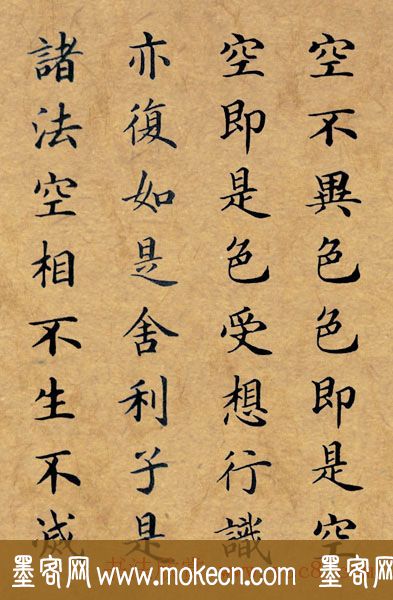 空不異色色即是空
空即是色受想行識
亦復如是舍利子是
諸法空相不生不滅
墨客网www.mokecn.com墨客网